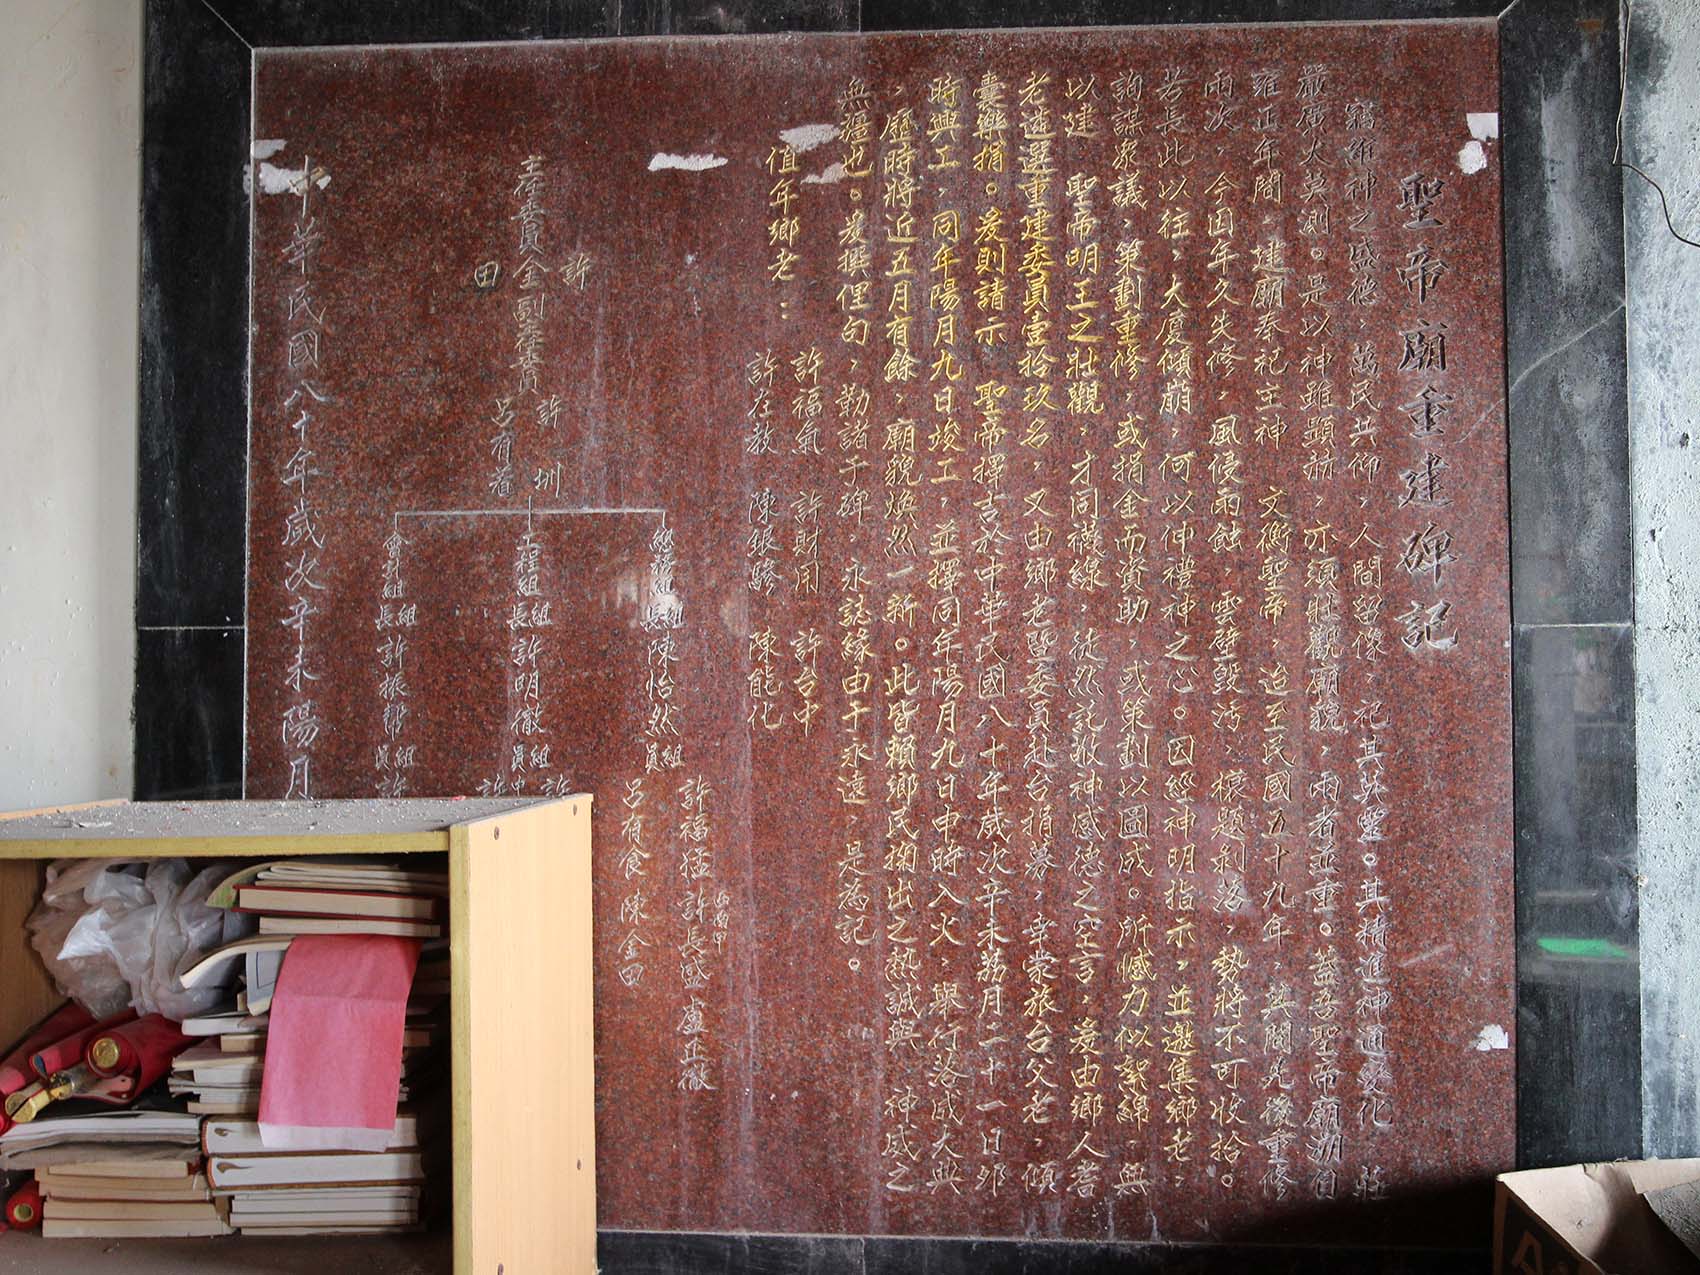 聖帝廟重建碑記
竊維神之盛德，萬民共仰，人間留像，祀其英靈。其精進神通變化 莊
嚴廣大莫測。是以神雖顯赫，亦須壯觀廟貌，兩者並重。蓋吾聖帝廟溯自
雍正年間，建廟奉祀主神 文衡聖帝，迨至民國五十九年，其間先後重修
兩次，今因年久失修，風侵雨蝕，雲壁毀污，榱題剝落，勢將不可收拾。
若長此以往，大廈傾崩，何以伸禮神之心。因經神明指示，並邀集鄉老，
詢謀眾議，策劃重修，或捐金而資助，或策劃以圖成。所憾力似絮綿，無
以建 聖帝明王之壯觀，才同襪線，徒然託敬神感德之空言，爰由鄉人耆
老遴選重建委員壹拾玖名，又由鄉老暨委員赴台捐募，幸蒙旅台父老，傾
囊樂捐。爰則請示 聖帝擇吉於中華民國八十年歲次辛未荔月二十一日卯
時興工，同年陽月九日竣工，並擇同年陽月九日申時入火，舉行落成大典
，歷時將近五月有餘，廟貌煥然一新。此皆賴鄉民掬出之熱誠與 神威之
無疆也。爰撰俚句，勤諸于碑，永誌緣由于永遠，是為記。
值年鄉老： 許福氣 許財用 許台中
許在教 陳銀 陳能化
主任委員 許金田 副主任委員 許圳 呂有着
總務組組長 陳怡然 組員 許福猛 許長盛 盧正徽
呂有食 陳金田
工程組組長 許明徹 組員 許
許
會計組組長 許振幫 組員 許
中華民國八十年歲次辛未陽月